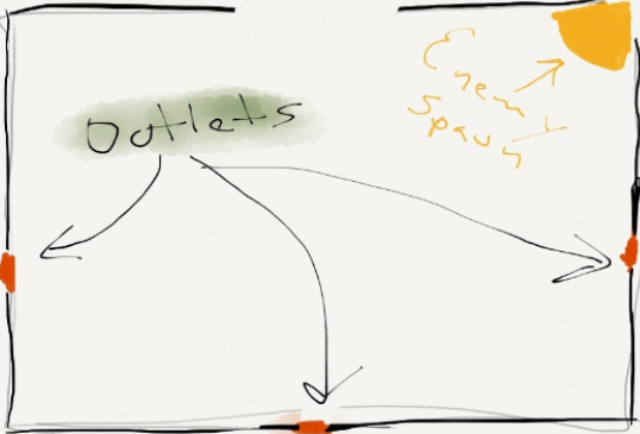 Outlets
Enemy
Spawn